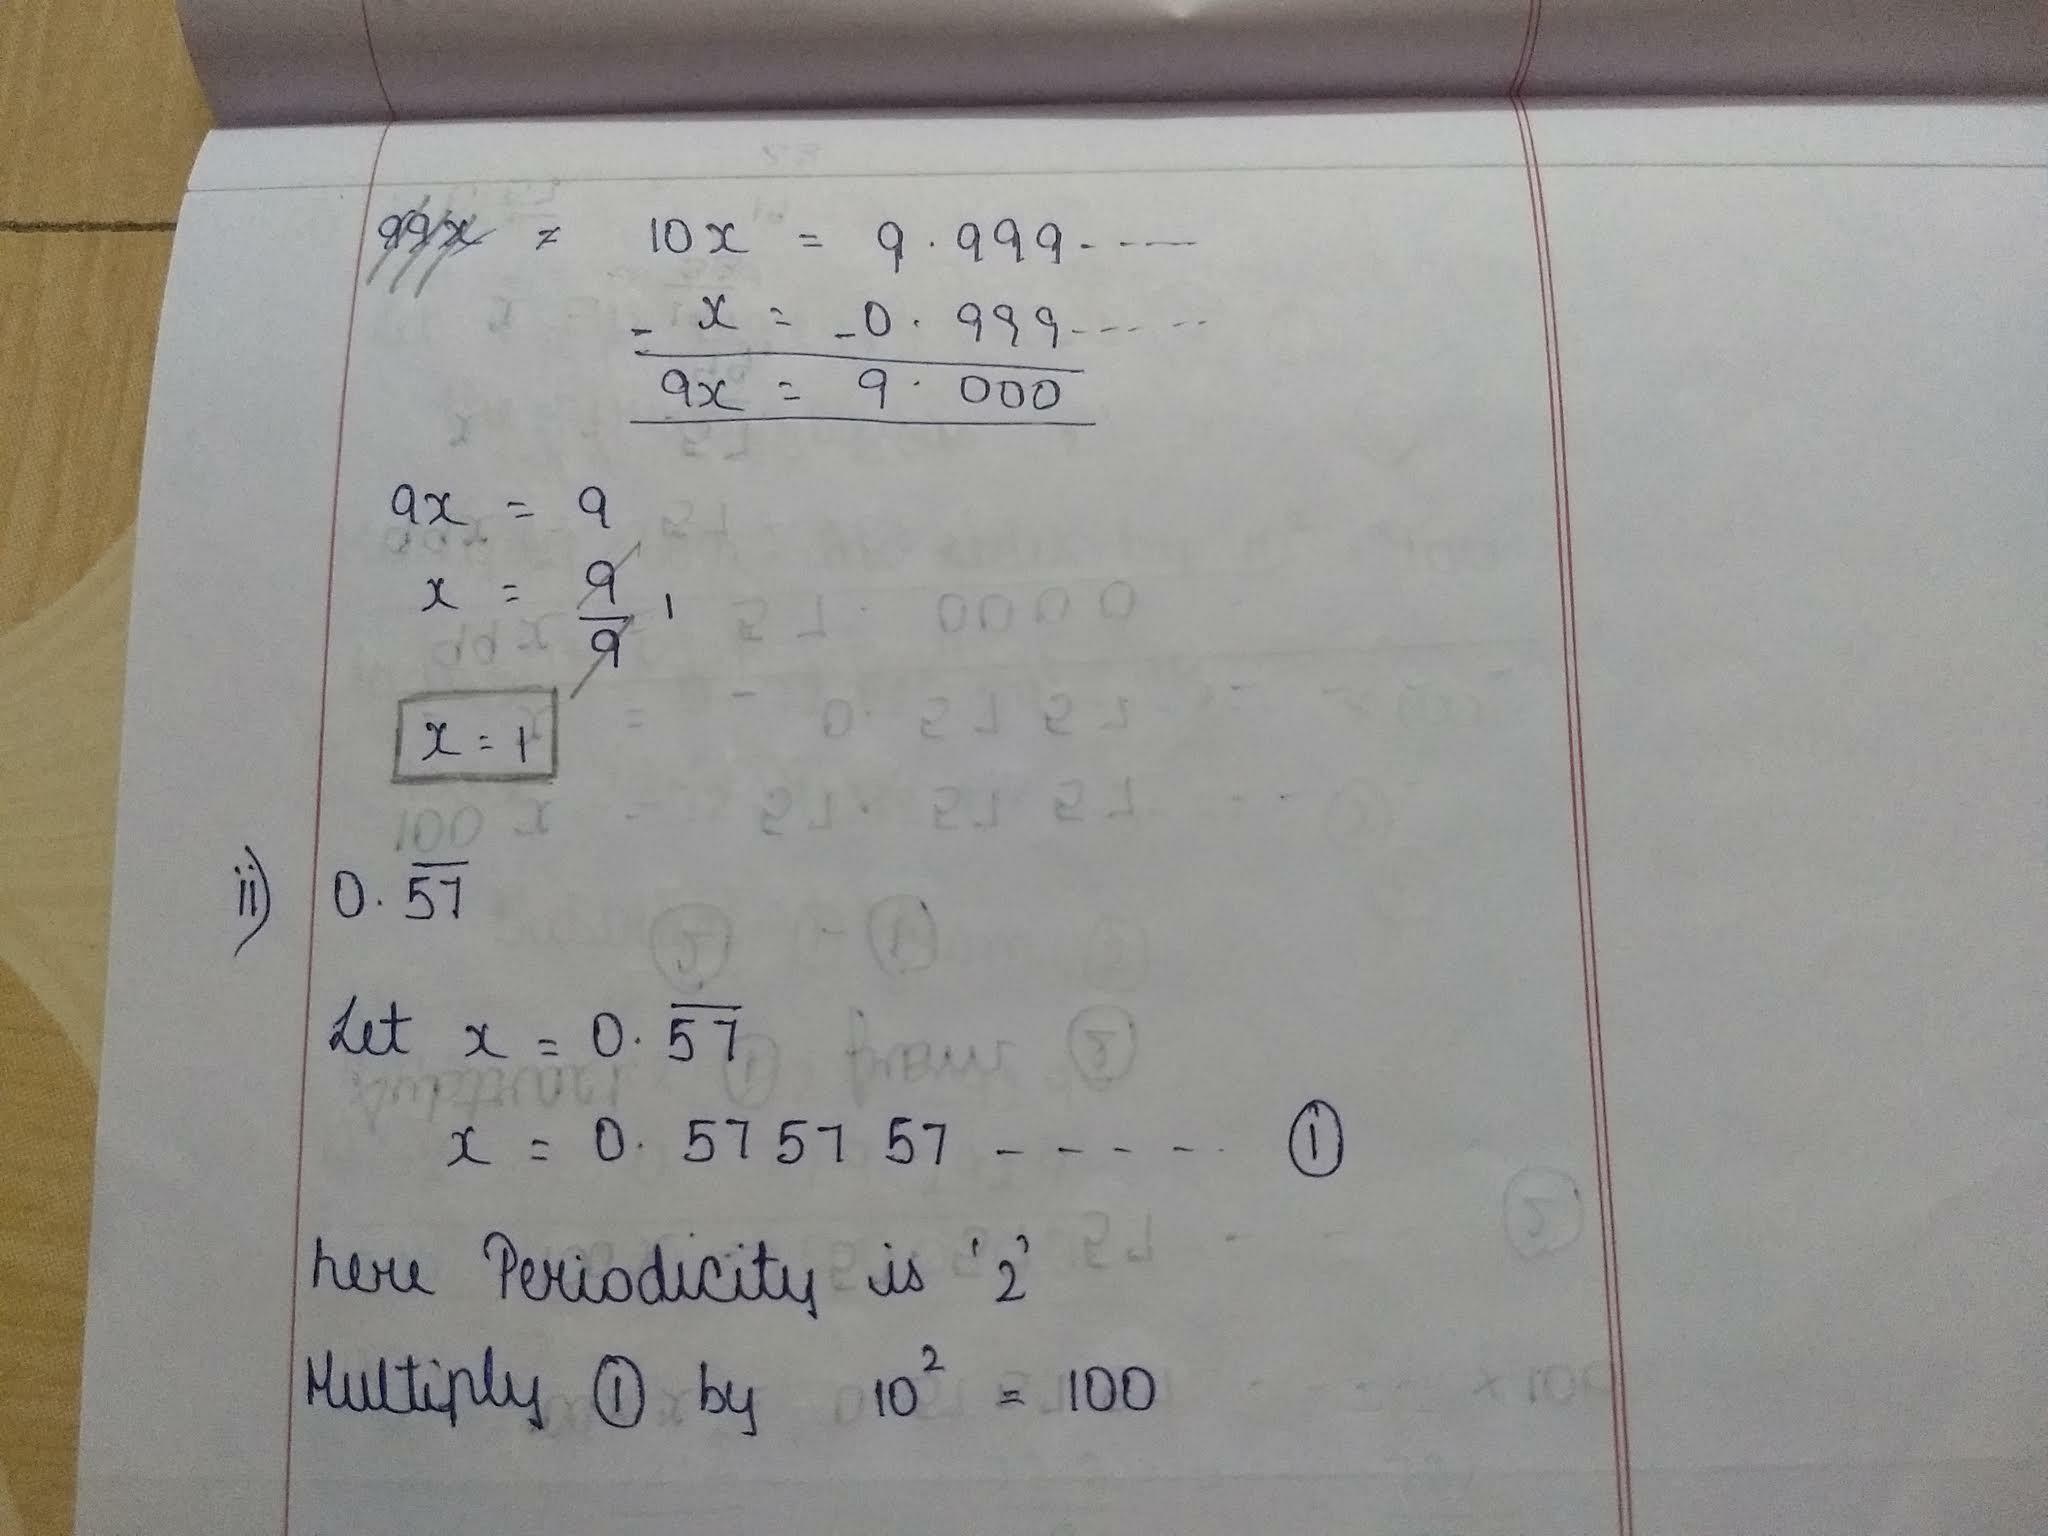 99x = 10x = 9.999-----
- x = -0.999------
9x = 9.000
9x = 9
x = 9/9 1
x = 1
ii) 0.5̅7̅
Let x = 0.5̅7̅
x = 0.57 57 57 ----- ①
here Periodicity is '2'
Multiply ① by 10² = 100